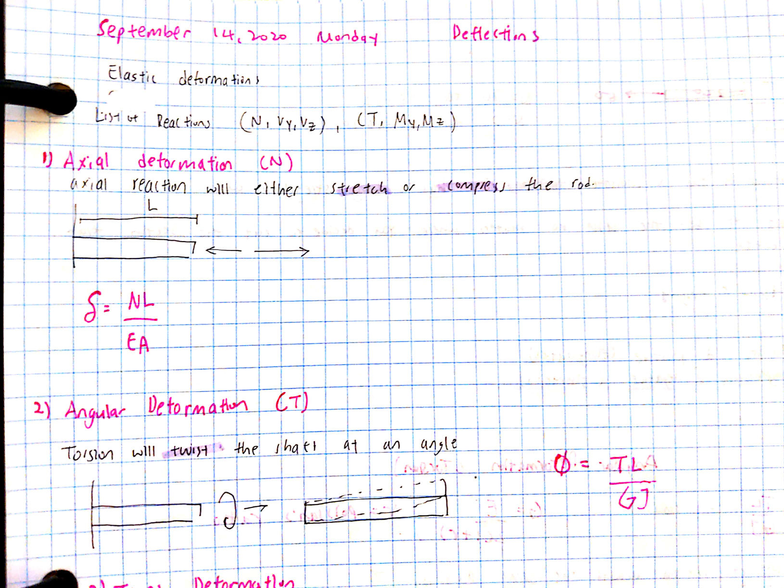 September 14, 2020 Monday Deflections
Elastic deformations
List of Reactions (N, Vy, Vz), (T, My, Mz)
1) Axial deformation (N)
axial reaction will either stretch or compress the rod.
L
δ = NL
EA
2) Angular Deformation (T)
Torsion will twist the shaft at an angle
Φ = TL
GJ
Deformation